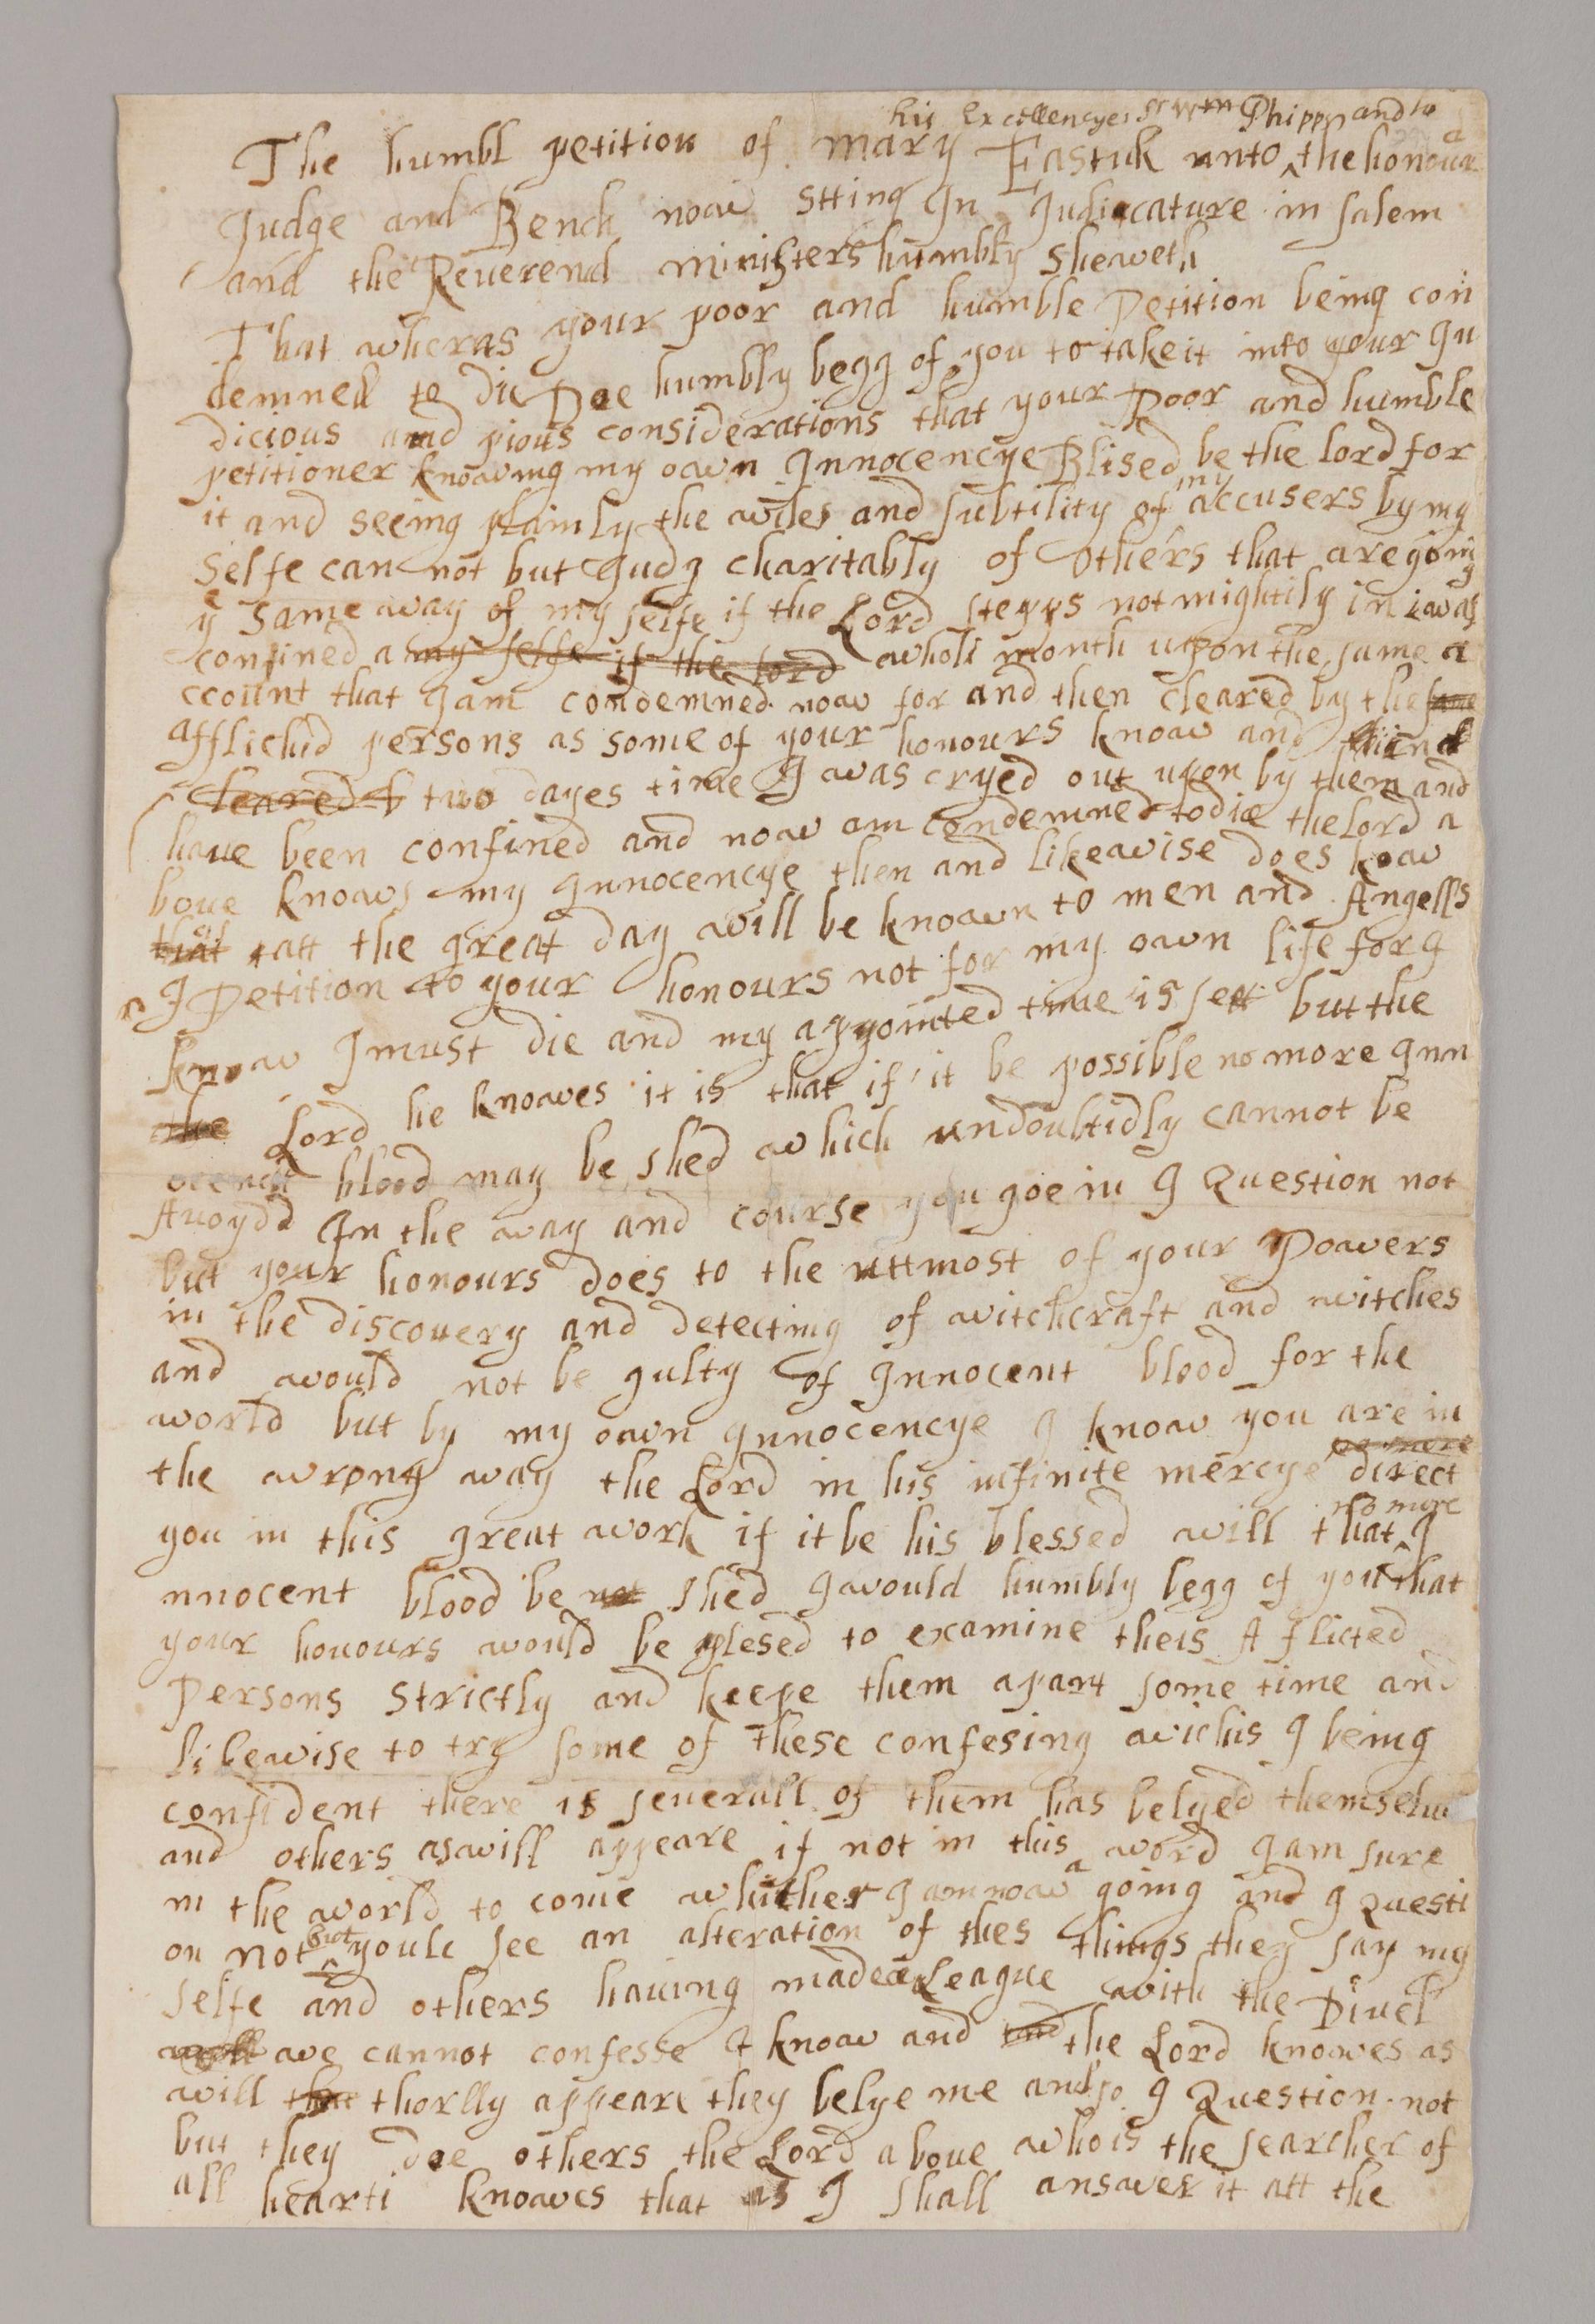 his Excellencyes Sr Wm Phipps and to
The humbl petition of mary Eastick unto ^ the honour
Judge and Bench now stting In Judicature in Salem
and the Reverend ministers humbly sheweth
That wheras your poor and humble Petition being con
demned to die Doe humbly begg of you to take it into your Ju
dicious and pious considerations that your Poor and humble
petitioner knowing my own Innocencye Blised be the lord for
it and seeing plainly the wiles and subtility of my accusers by my
Selfe can not but Judg charitably of others that are going
ye same way of my selfe if the Lord stepps not mightily in i was
confined a my selfe if the lord whole month upon the same a
ccount that I am condemned now for and then cleared by the
afflictid persons as some of your honours know and in
cleared b two dayes time I was cryed out upon by them and
have been confined and now am condemned to die the Lord a
bove knows my Innocencye then and likewise does know
that att the great day will be known to men and Angells
I Petition to your honours not for my own life for I
know I must die and my appointed time is sett but the
the Lord he knowes it is that if it be possible no more Inn
ocent blood may be shed which undoubtidly cannot be
Avoydd In the way and course you goe in I Question not
but your honours does to the uttmost of your Powers
in the discovery and detecting of witchcraft and witches
and would not be gulty of Innocent blood for the
world but by my own Innocencye I know you are in
the wrong way the Lord in his infinite mercye direct
no more
you in this great work if it be his blessed will that ^ I
nnocent blood be not shed I would humbly begg of you that
your honours would be plesed to examine theis Aflicted
Persons strictly and keepe them apart some time and
likewise to try some of these confesing wichis I being
confident there is severall of them has belyed themselves
and others as will appeare if not in this word I am sure
in the world to come whither I am now a going and I Questi
on not but youle see an alteration of thes things they say my
selfe and others having made a League with the Divel
we cannot confesse I know and the Lord knowes as
will thorlly appeare they belye me and so I Question not
but they doe others the Lord above who is the searcher of
all hearts knowes that as I shall answer it att the